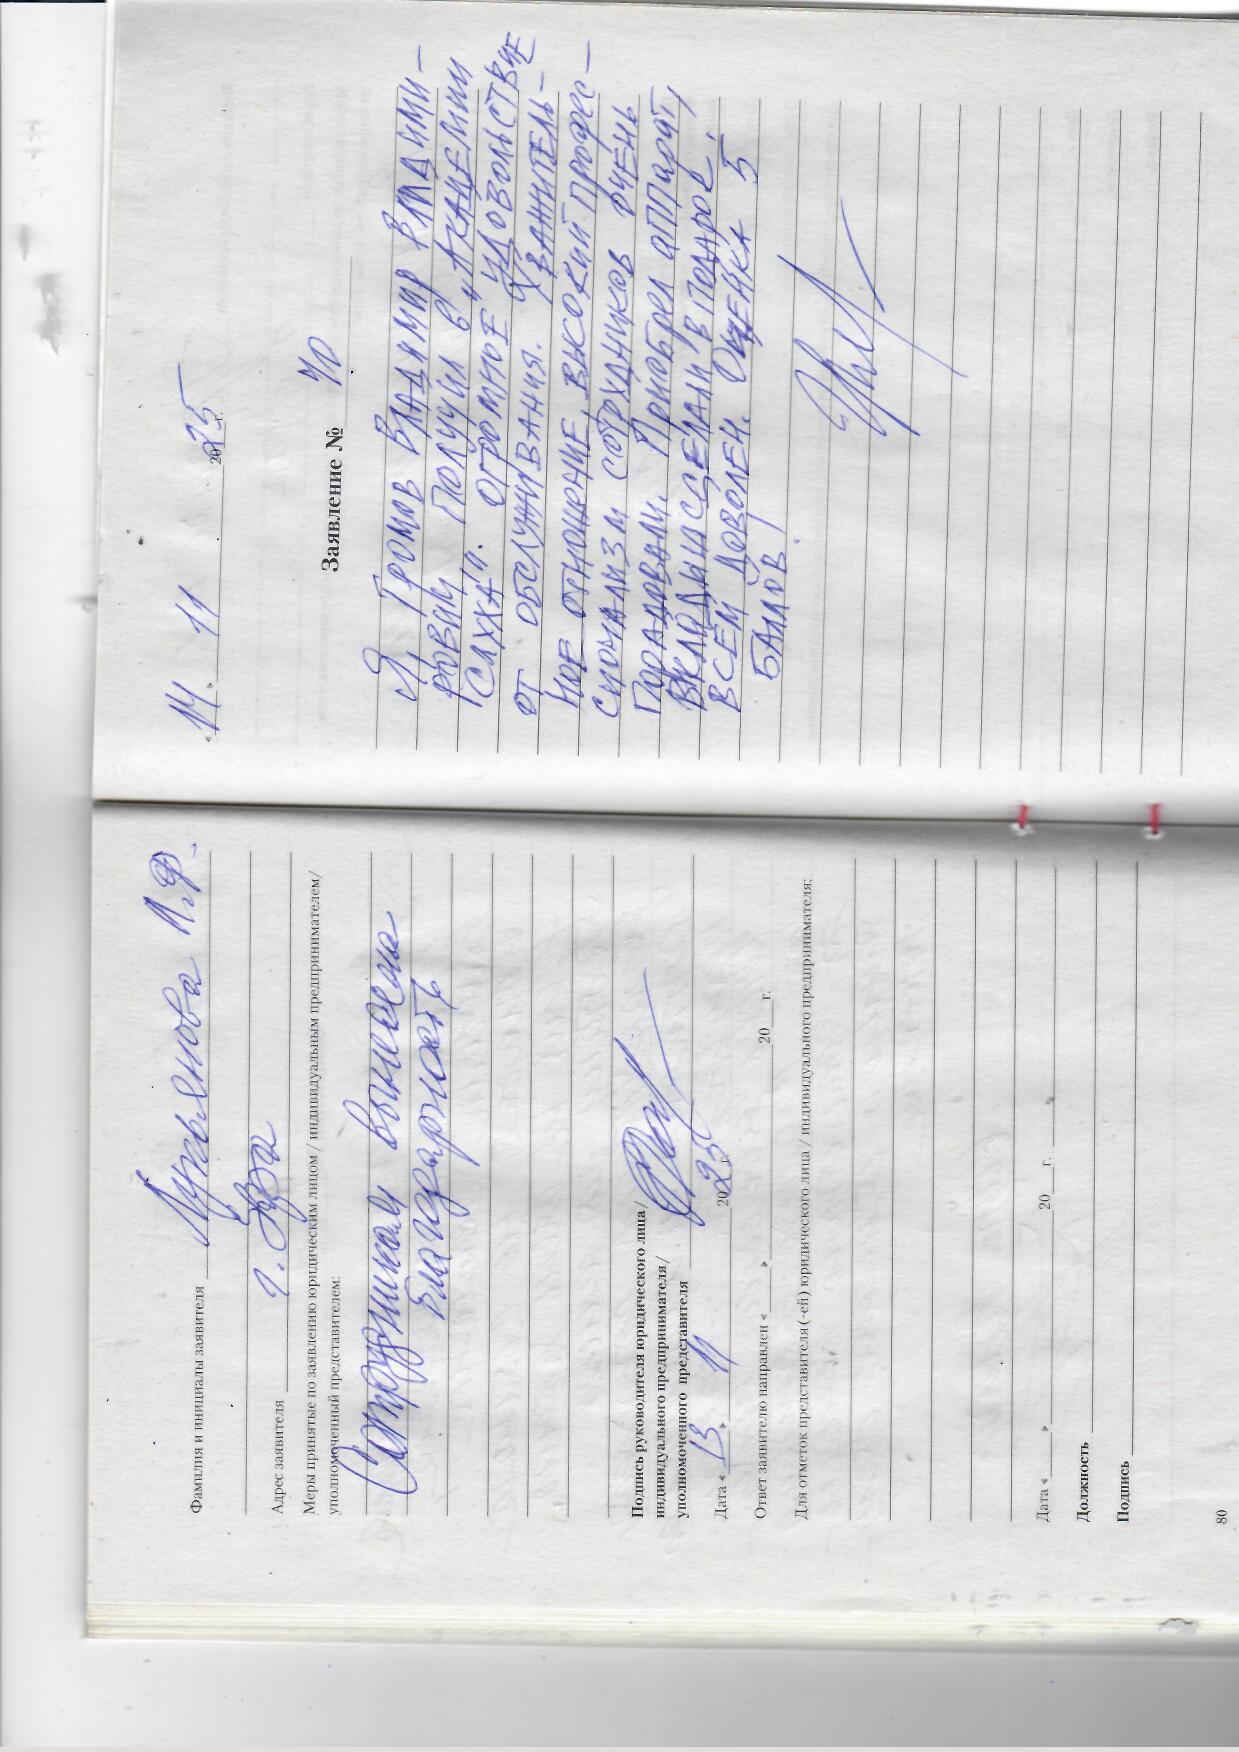 Фамилия и инициалы заявителя Лукьянова Л.Ф.
Адрес заявителя г.
Меры принятые по заявлению юридическим лицом / индивидуальным предпринимателем/
уполномоченный представителем:
Сотрудникам вынесена
благодарность
Подпись руководителя юридического лица/
индивидуального предпринимателя/
уполномоченного представителя
Дата « 13 » 11 2025 г.
Ответ заявителю направлен «____»____20___г.
Для отметок представителя(-ей) юридического лица / индивидуального предпринимателя:
Дата «____»____20___г.
Должность
Подпись
80
« 14 » 11 2025 г.
Заявление № 40
Я, Громов Владимир Владими-
рович получил в „Академии
Слуха". Огромное удовольствие
от обслуживания. Уважитель-
ное отношение, высокий профес-
сионализм сотрудников очень
порадовали. Приобрел аппарат,
вкладыш сделали в подарок.
Всем доволен. Оценка 5
баллов!